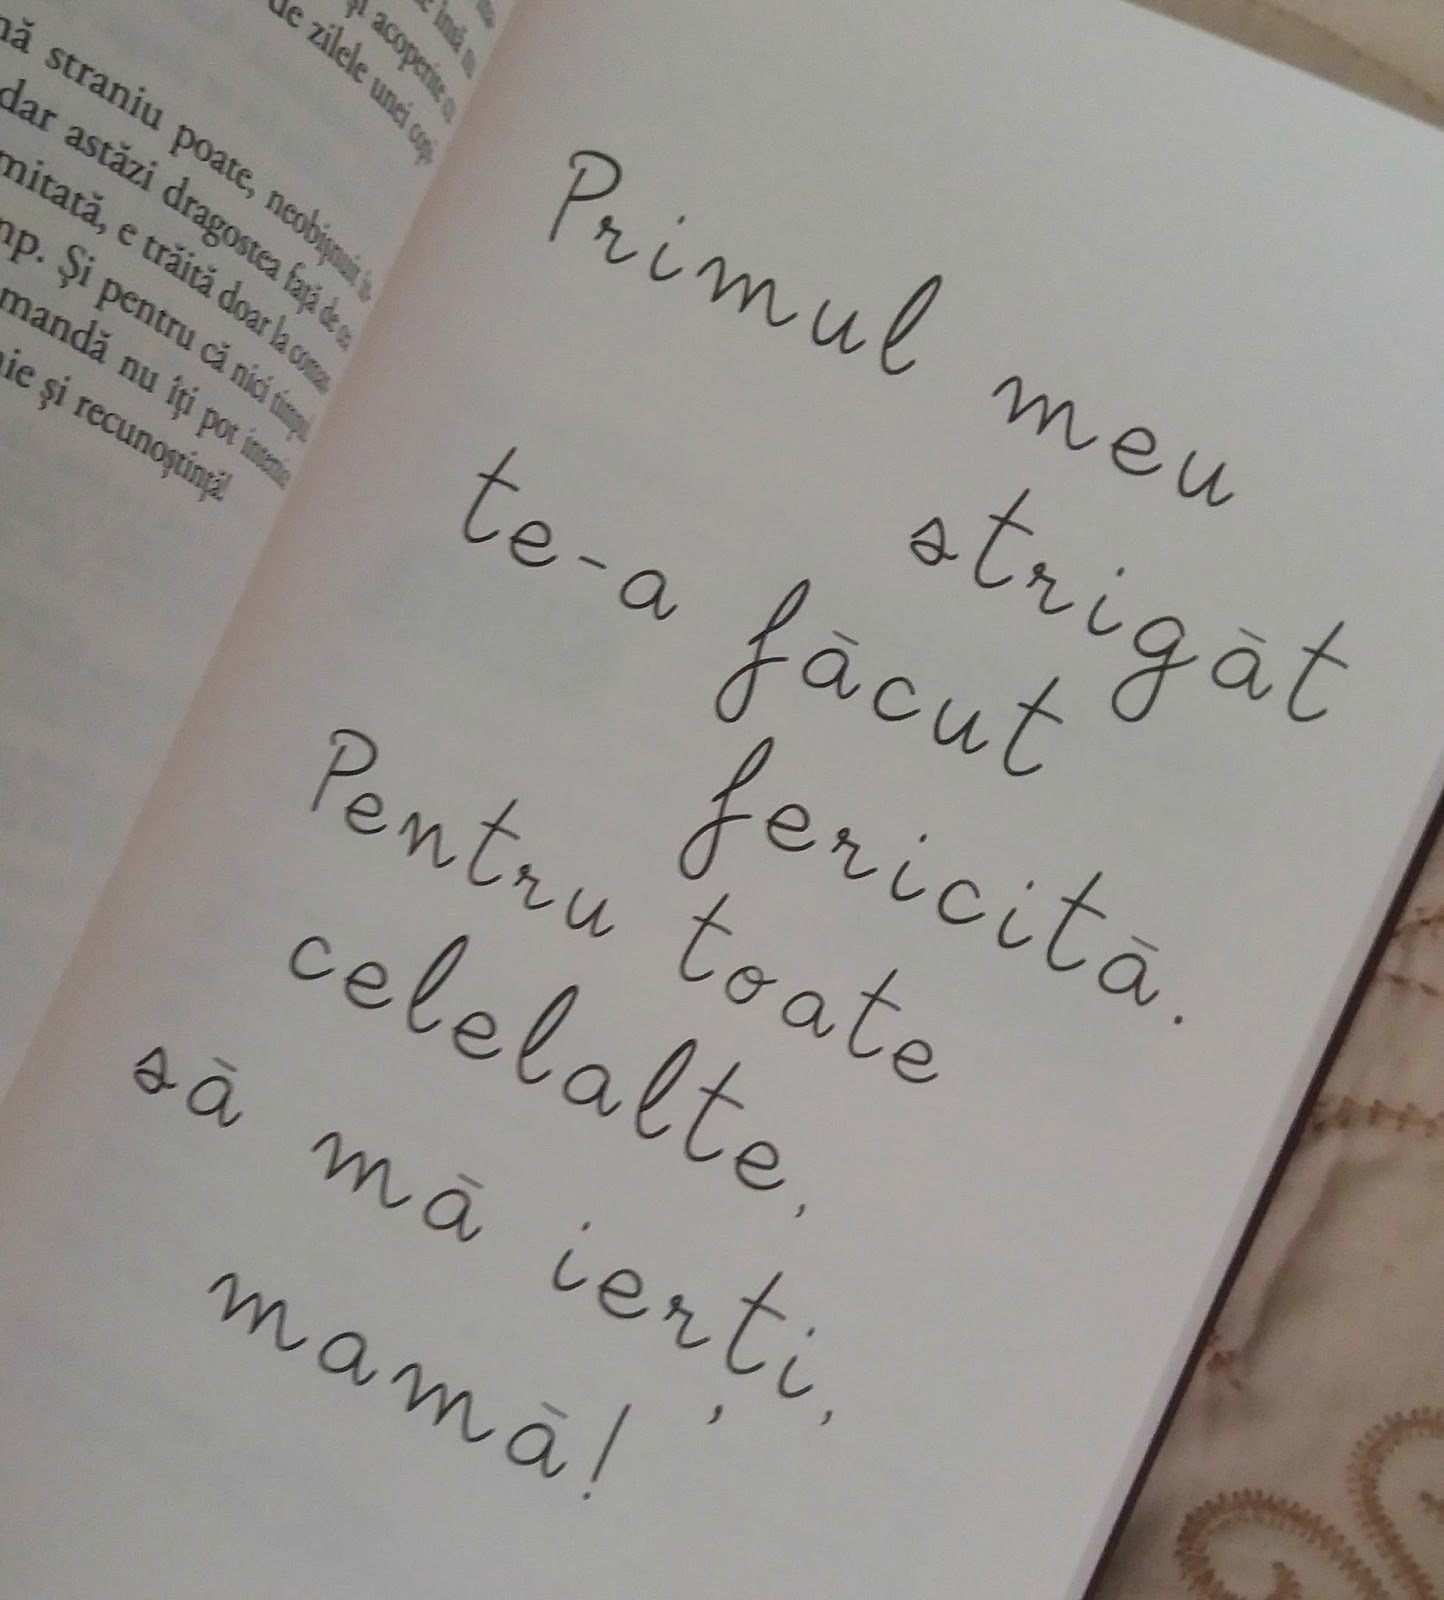 şi acoperite
de zilele unei
straniu poate, neobişnuit
dar astăzi dragostea faţă de
mitată, e trăită doar la
mp. Şi pentru că nici timpul
mandă nu îţi pot
şi recunoştinţă!
Primul meu
strigăt
te-a făcut
fericită.
Pentru toate
celelalte,
să mă ierți,
mamă!